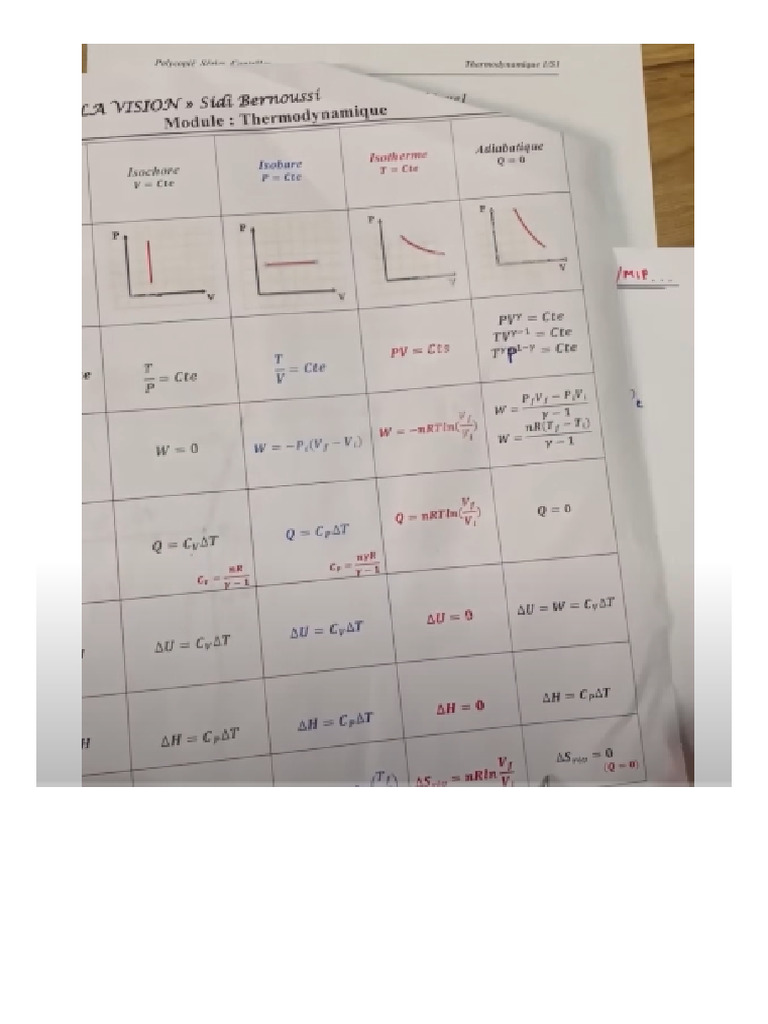 Thermodynamique 1/S1
LA VISION » Sidi Bernoussi
Module : Thermodynamique
Isochore
V = Cte
Isobare
P = Cte
Isotherme
T = Cte
Adiabatique
Q = 0
P
V
P
V
P
V
P
V
/MIP...
T/P = Cte
T/V = Cte
PV = Cts
PV^γ = Cte
TV^γ−1 = Cte
T^γ P^1−γ = Cte
W = 0
W = −P_i(V_f − V_i)
W = −nRT ln(V_f/V_i)
W = (P_f V_f − P_i V_i)/(γ − 1)
W = nR(T_f − T_i)/(γ − 1)
Q = C_V ΔT
C_v = nR/(γ − 1)
Q = C_P ΔT
C_P = nγR/(γ − 1)
Q = nRT ln(V_f/V_i)
Q = 0
ΔU = C_V ΔT
ΔU = C_V ΔT
ΔU = 0
ΔU = W = C_V ΔT
H
ΔH = C_P ΔT
ΔH = C_P ΔT
ΔH = 0
ΔH = C_P ΔT
ΔS_rév = nR ln V_f/V_i
ΔS_rév = 0
(Q = 0)